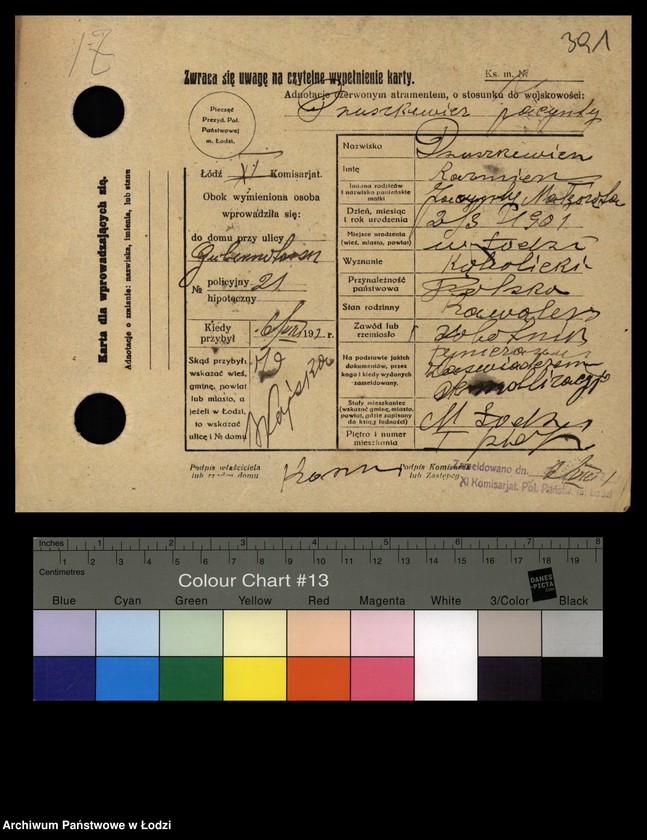 391
Zwraca się uwagę na czytelne wypełnienie karty.
Ks. m. №
Adnotacje czerwonym atramentem, o stosunku do wojskowości:
Pieczęć
Prezyd. Pol.
Państwowej
m. Łodzi.
Łódź XI Komisarjat.
Obok wymieniona osoba
wprowadziła się:
do domu przy ulicy
№ policyjny 21
hipoteczny
Kiedy
przybył
6/VIII 192 r.
Skąd przybył,
wskazać wieś,
gminę, powiat
lub miasto, a
jeżeli w Łodzi,
to wskazać
ulicę i № domu
z Wojska
Nazwisko
Imię
Kazimierz
Imiona rodziców
i nazwisko panieńskie
matki
Dzień, miesiąc
i rok urodzenia
2/3 1901
Miejsce urodzenia
(wieś, miasto, powiat)
w Łodzi
Wyznanie
Katolicki
Przynależność
państwowa
Polska
Stan rodzinny
Kawaler
Zawód lub
rzemiosło
robotnik
Na podstawie jakich
dokumentów, przez
kogo i kiedy wydanych
zameldowany.
Stały mieszkaniec
(wskazać gminę, miasto,
powiat, gdzie zapisany
do ksiąg ludności)
M. Łodzi
Piętro i numer
mieszkania
Podpis właściciela
lub rządcy domu
Podpis Komisarza
lub Zastępcy
Zameldowano dn.
XI Komisarjat. Pol. Państw. m. Łodzi
Karta dla wprowadzających się.
Adnotacje o zmianie: nazwiska, imienia, lub stanu
Inches 1 2 3 4 5 6 7 8
Centimetres 1 2 3 4 5 6 7 8 9 10 11 12 13 14 15 16 17 18 19
Colour Chart #13
DANES
-PICTA
.COM
Blue Cyan Green Yellow Red Magenta White 3/Color Black
Archiwum Państwowe w Łodzi